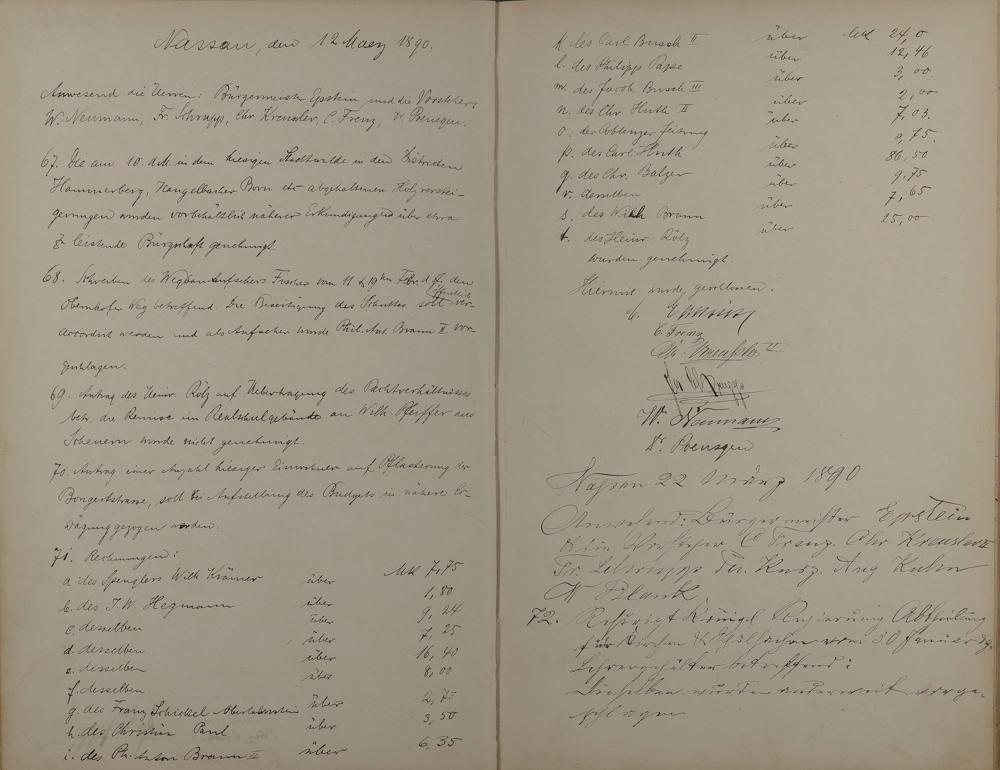 Nassau, den 12 Maerz 1890.
Anwesend die Herren: Bürgermeister Epstein und die Vorsteher
W. Neumann, Fr. Schrupp, Chr. Kreusler, C. Frenz, Dr. Poensgen.
67. Die am 10. d.M. in dem hiesigen Stadtwalde in den Distrikten
Hammerberg, Born etc abgehaltenen Holzverstei-
gerungen wurden vorbehältlich näherer Erkundigungen über etwa
zu leistende Bürgschaft genehmigt.
68. Schreiben des Wegbau-Aufsehers Fischer vom 11 & 19ten Febr. d. J. den
Obernhofer Weg betreffend. Die Beseitigung des Schuttes soll öffentlich ver-
accordirt werden und als Aufseher wurde Phil. Ant. Braun II vor-
geschlagen.
69. Antrag des Heinr. Rölz auf Uebertragung des Pachtverhältnisses
betr. die Remise im Realschulgebäude an Wilh. Pfeiffer aus
Scheuern wurde nicht genehmigt.
70. Antrag einer Anzahl hiesiger Einwohner auf Pflasterung der
Bongertstrasse, soll bei Aufstellung des Budgets in nähere Er-
wägung gezogen werden.
71. Rechnungen:
a des Spenglers Wilh Krämer über Mk 7,75
b. des J. W. Hegmann über 1,80
c. desselben über 9,24
d. desselben über 7,25
e. desselben über 16,40
f. desselben über 6,00
g. des Franz Schickel Oberlahnstein über 2,75
h. des Christian Paul über 3,50
i. des Ph. Anton Braun II über 6,35
k des Carl Busch II über Mk 24,0
l. des Philipp Pape über 12,46
m. des Jacob Busch III über 3,00
n. des Chr. Huth II über 2,00
o. der Coblenzer Zeitung über 7,03.
p. des Carl Huth über 0,75.
q. des Chr. Balzer über 86,50
r. desselben über 9,75
s. des Wilh Braun über 7,65
t. des Heinr. Rölz über 25,00
wurden genehmigt.
Hiermit wurde geschlossen.
Epstein
C. Frenz
Chr. Kreusler II
Fr. Schrupp
W. Neumann
Dr. Poensgen
Nassau 22 März 1890
Anwesend: Bürgermeister Epstein
& die Vorsteher C Frenz. Chr Kreusler II
Fr. Schrupp Aug Kuhn
W Blank
72. Rescript Königl Regierung Abtheilung
für Kirchen & Schulsachen vom 30 Januar
Lehrergehälter betreffend:
Dieselben wurden anderweit vorge-
schlagen